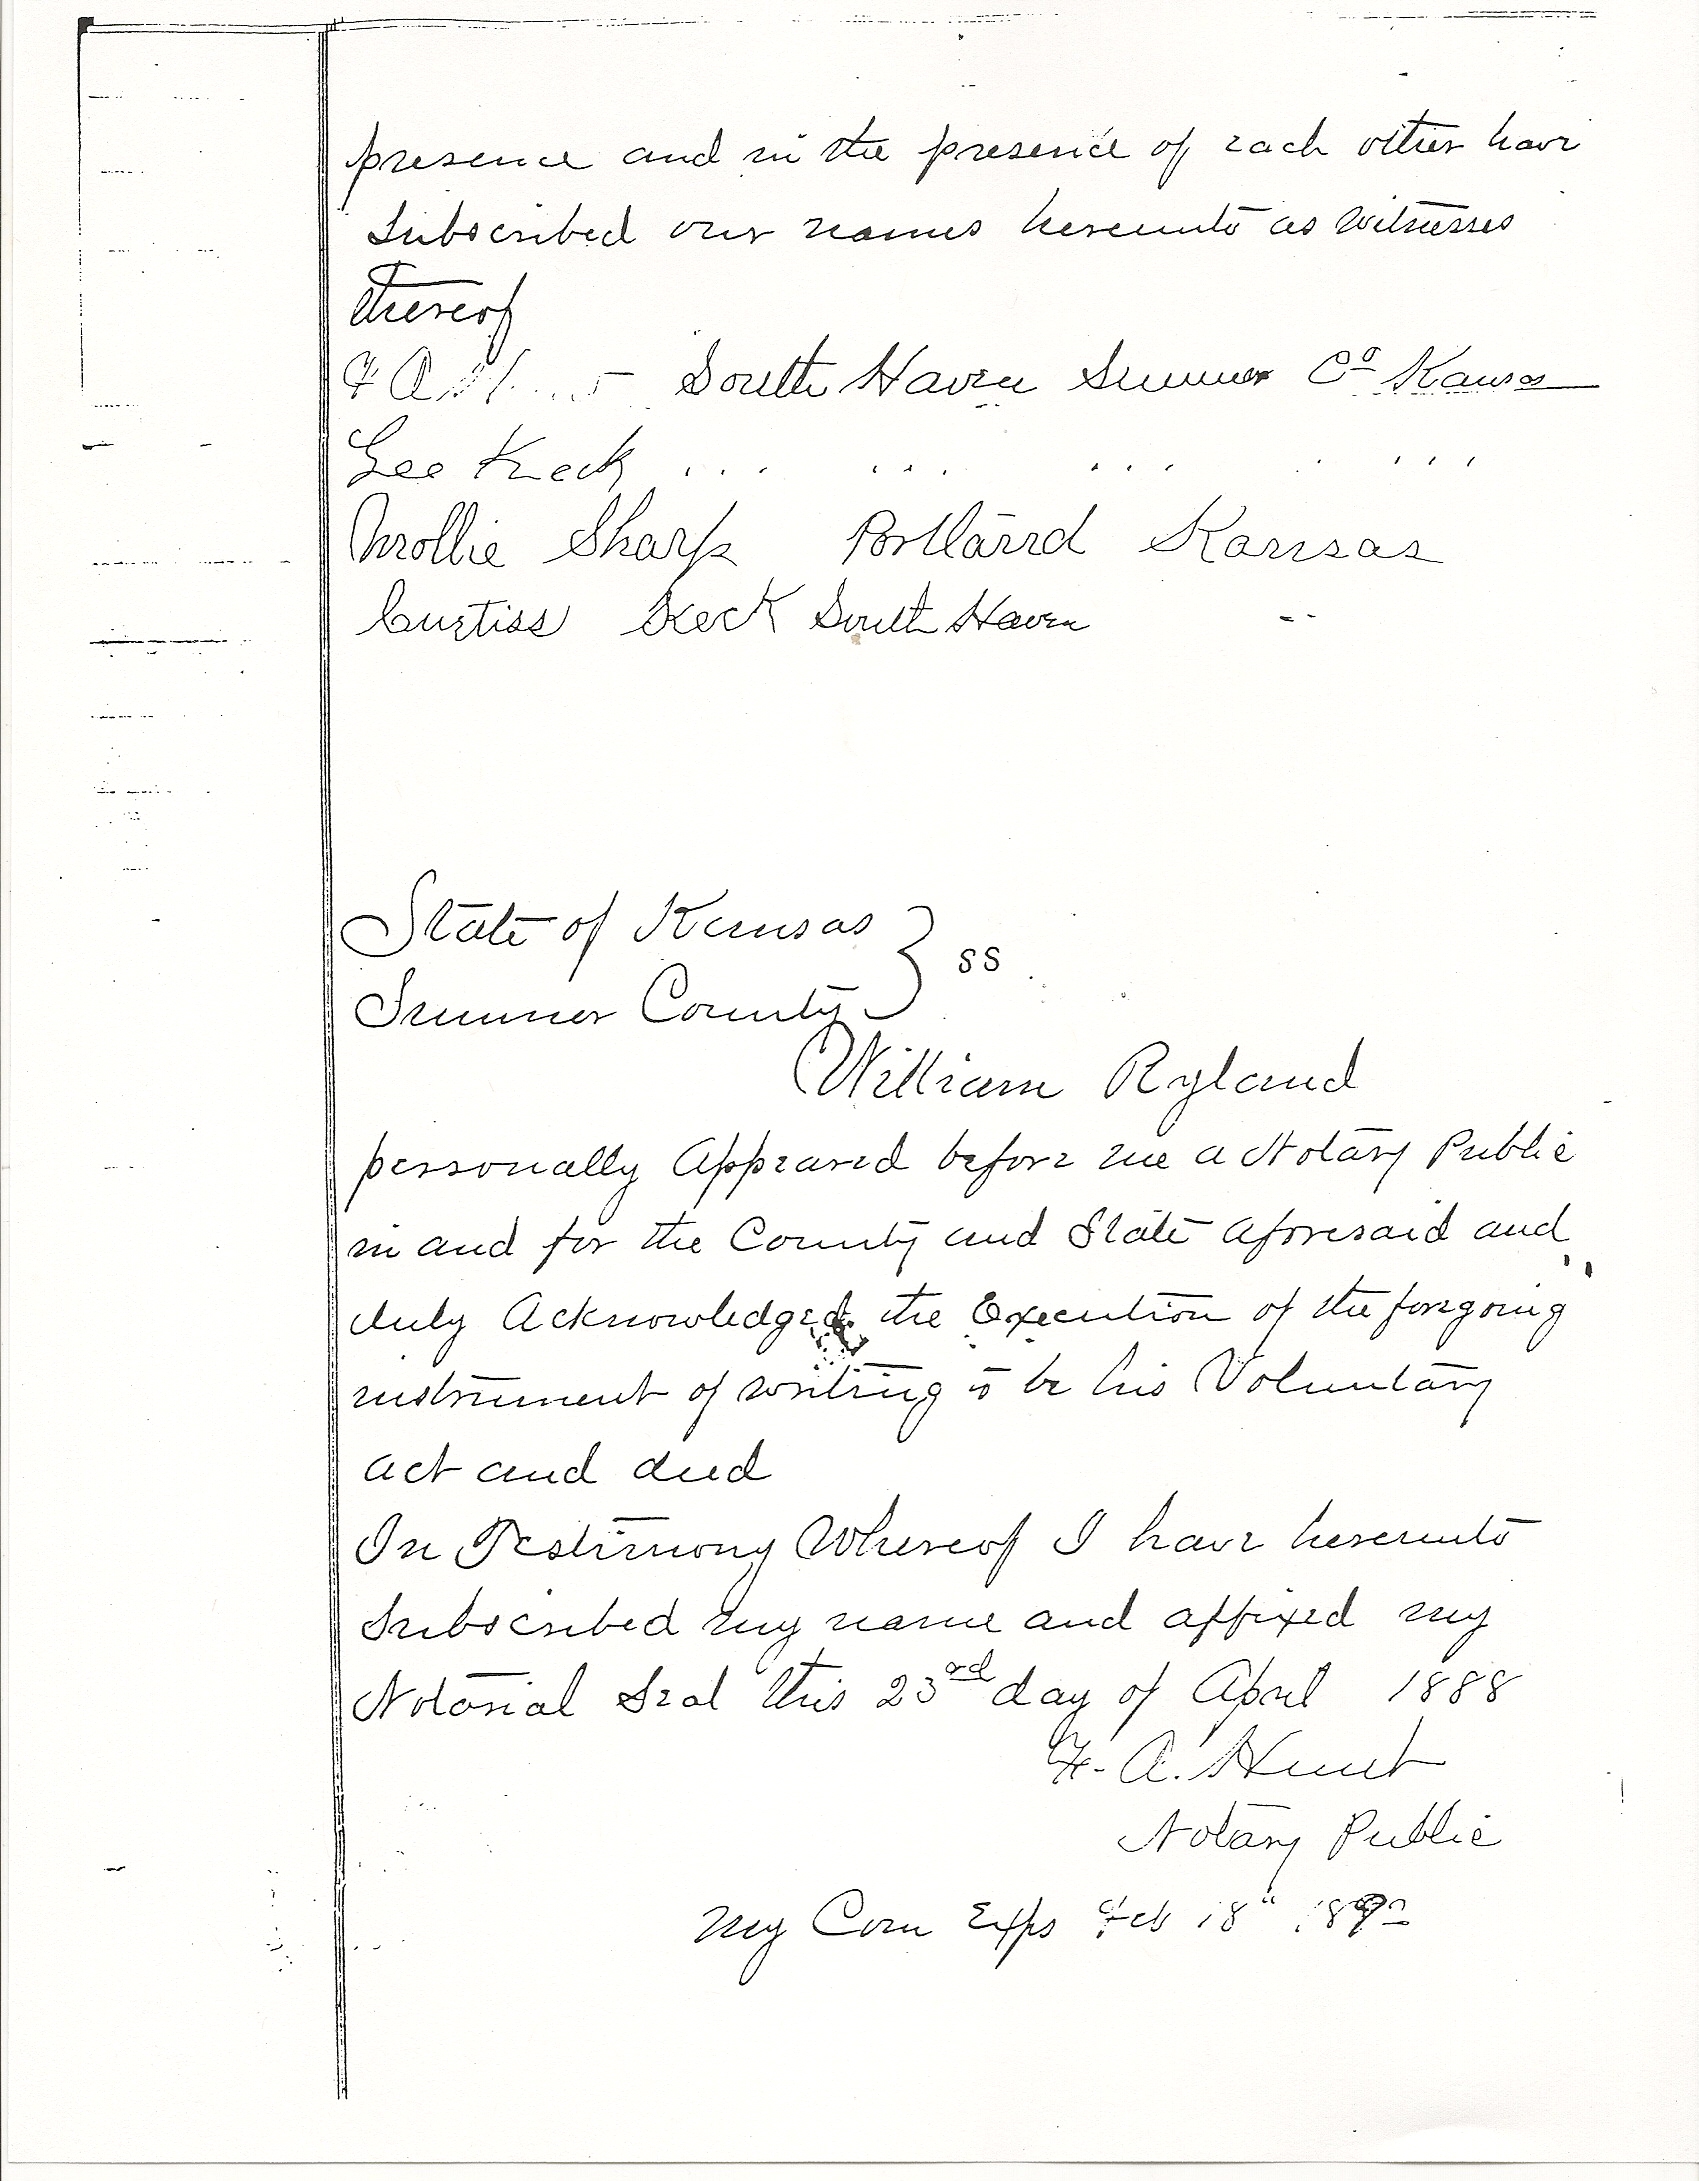 presence and in the presence of each other have
Subscribed our names hereunto as Witnesses
thereof
F A South Haven Sumner Co Kansas
Lee Keck ... ... ... ...
Mollie Sharp Portland Kansas
Curtiss Keck South Haven
State of Kansas } ss
Sumner County
William Ryland
personally Appeared before me a Notary Public
in and for the County and State aforesaid and
duly Acknowledged the Execution of the foregoing
instrument of writing to be his Voluntary
act and deed
In Testimony Whereof I have hereunto
Subscribed my name and affixed my
Notarial Seal this 23rd day of April 1888
F. A. Hunt
Notary Public
My Com Exps Feb 18"